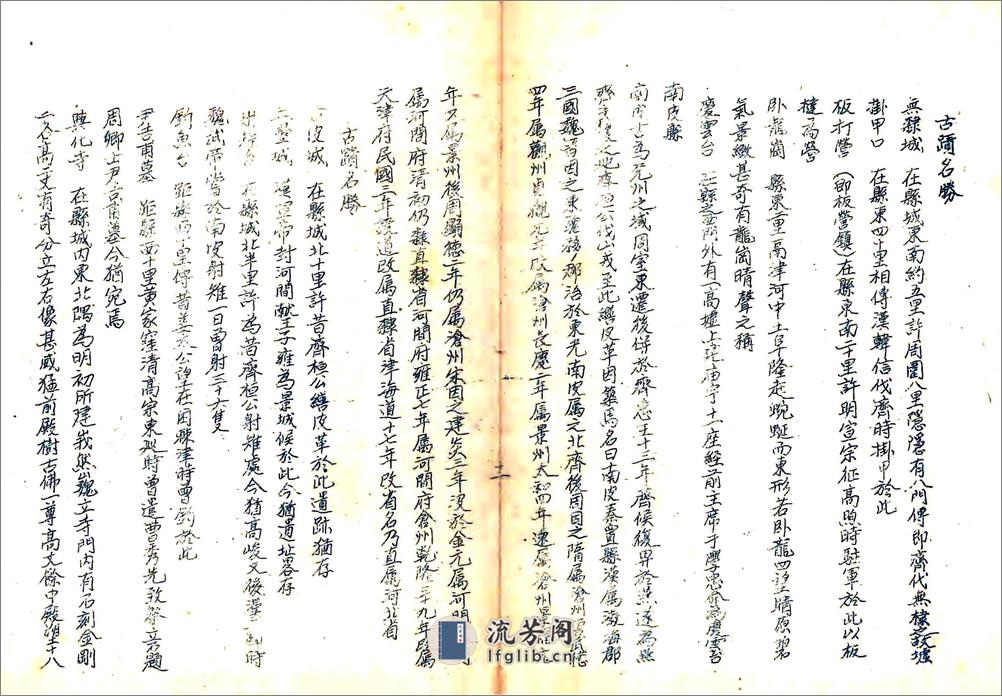 古蹟名勝
無隸城 在縣城東南約五里許周圍八里隱隱有八門傳即齊代無棣故墟
掛甲口 在縣東四十里相傳漢韓信伐齊時掛甲於此
板打營 (即板營鎮)在縣東南二十里許明宣宗征高煦時駐軍於此以板
撻為營
卧龍崗 縣東二里高津河中土阜隆起蜿蜒而東形若卧龍四望晴原碧
氣景緻甚奇有龍崗晴聲之稱
慶雲台 在縣之西門外有一高墟上建庙宇十一座經前主席于學忠命為慶雲台
南皮縣
南皮古為兗州之域周室東遷後併於齊 王十三年齊侯復畀於燕遂為燕
齊 之地 桓公伐山戎至此繕皮革因築焉名曰南皮秦置縣漢屬渤海郡
三國魏晉因之東 移郡治於東光南皮屬之北齊後周因之隋屬滄州 武德
四年屬觀州貞觀元年改屬滄州長慶二年屬景州太和四年還屬滄州
年又屬景州後周顯德二年仍屬滄州宋因之建炎三年沒於金元屬河間
屬河間府清初仍隸直隸省河間府雍正七年屬河間府倉州乾隆三十九年改屬
天津府民國三年設道改屬直隸省津海道十七年改省名乃直屬河北省
古蹟名勝
皮城 在縣城北十里許昔齊桓公繕皮革於此遺跡猶存
城 漢 帝封河間獻王子雍為景城候於此今猶遺址畧存
台 在縣城北半里許為昔齊桓公射雉處今猶高峻又後漢 時
魏武帝嘗於南皮射雉一日曾射三十六隻
釣魚台 距縣四十里傳昔姜太公望在困棘津時曾釣於此
尹吉甫墓 距縣西十里黃家窪清高宗東巡時曾遣曹秀先致祭立碣題
周卿士尹吉甫墓今猶宛焉
興化寺 在縣城内東北隅為明初所建峩然巍立寺門内有石刻金剛
二各高二丈有奇分立左右像甚威猛前殿樹古佛一尊高丈餘中殿塑十八
十一
流芳阁
lfglib.cn